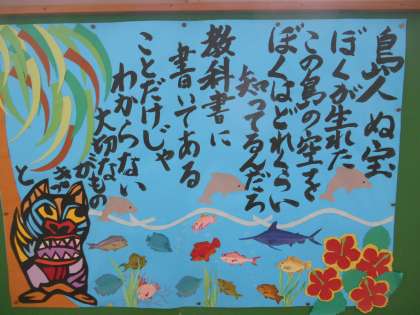 島人ぬ宝
ぼくが生れた
この島の空を
ぼくはどれくらい
知ってるんだろ
教科書に
書いてある
ことだけじゃ
わからない
大切なもの
がきっ
と